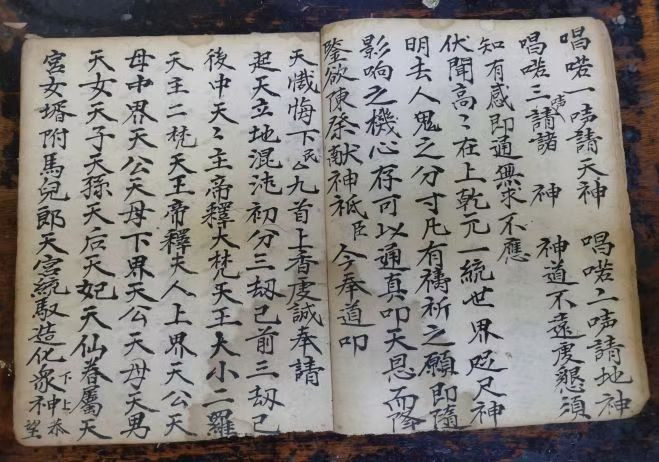 唱喏一声請天神　唱喏二声請地神
唱喏三声請諸　神　神道不遠虔懇須
知有感即通無求不應
伏聞高〻在上乾元一統世界咫尺神
明去人鬼之分寸凡有禱祈之願即隨
影响之機心存可以通真叩天恩而降
鑒欲陳祭献神祗臣　今奉道叩
天懺悔下民厶九首上香虔誠奉請
起天立地混沌初分三劫已前三劫已
後中天〻主帝釋大梵天王大小二羅
天主二梵天王帝釋夫人上界天公天
母中界天公天母下界天公天母天男
天女天子天孫天后天妃天仙眷屬天
宮女壻附馬兒郎天宮統馭造化衆神下上恭望